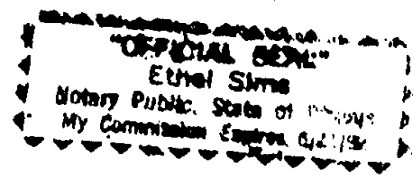 "OFFICIAL SEAL"
Ethel Sims
Notary Public, State of
My Commission Expires